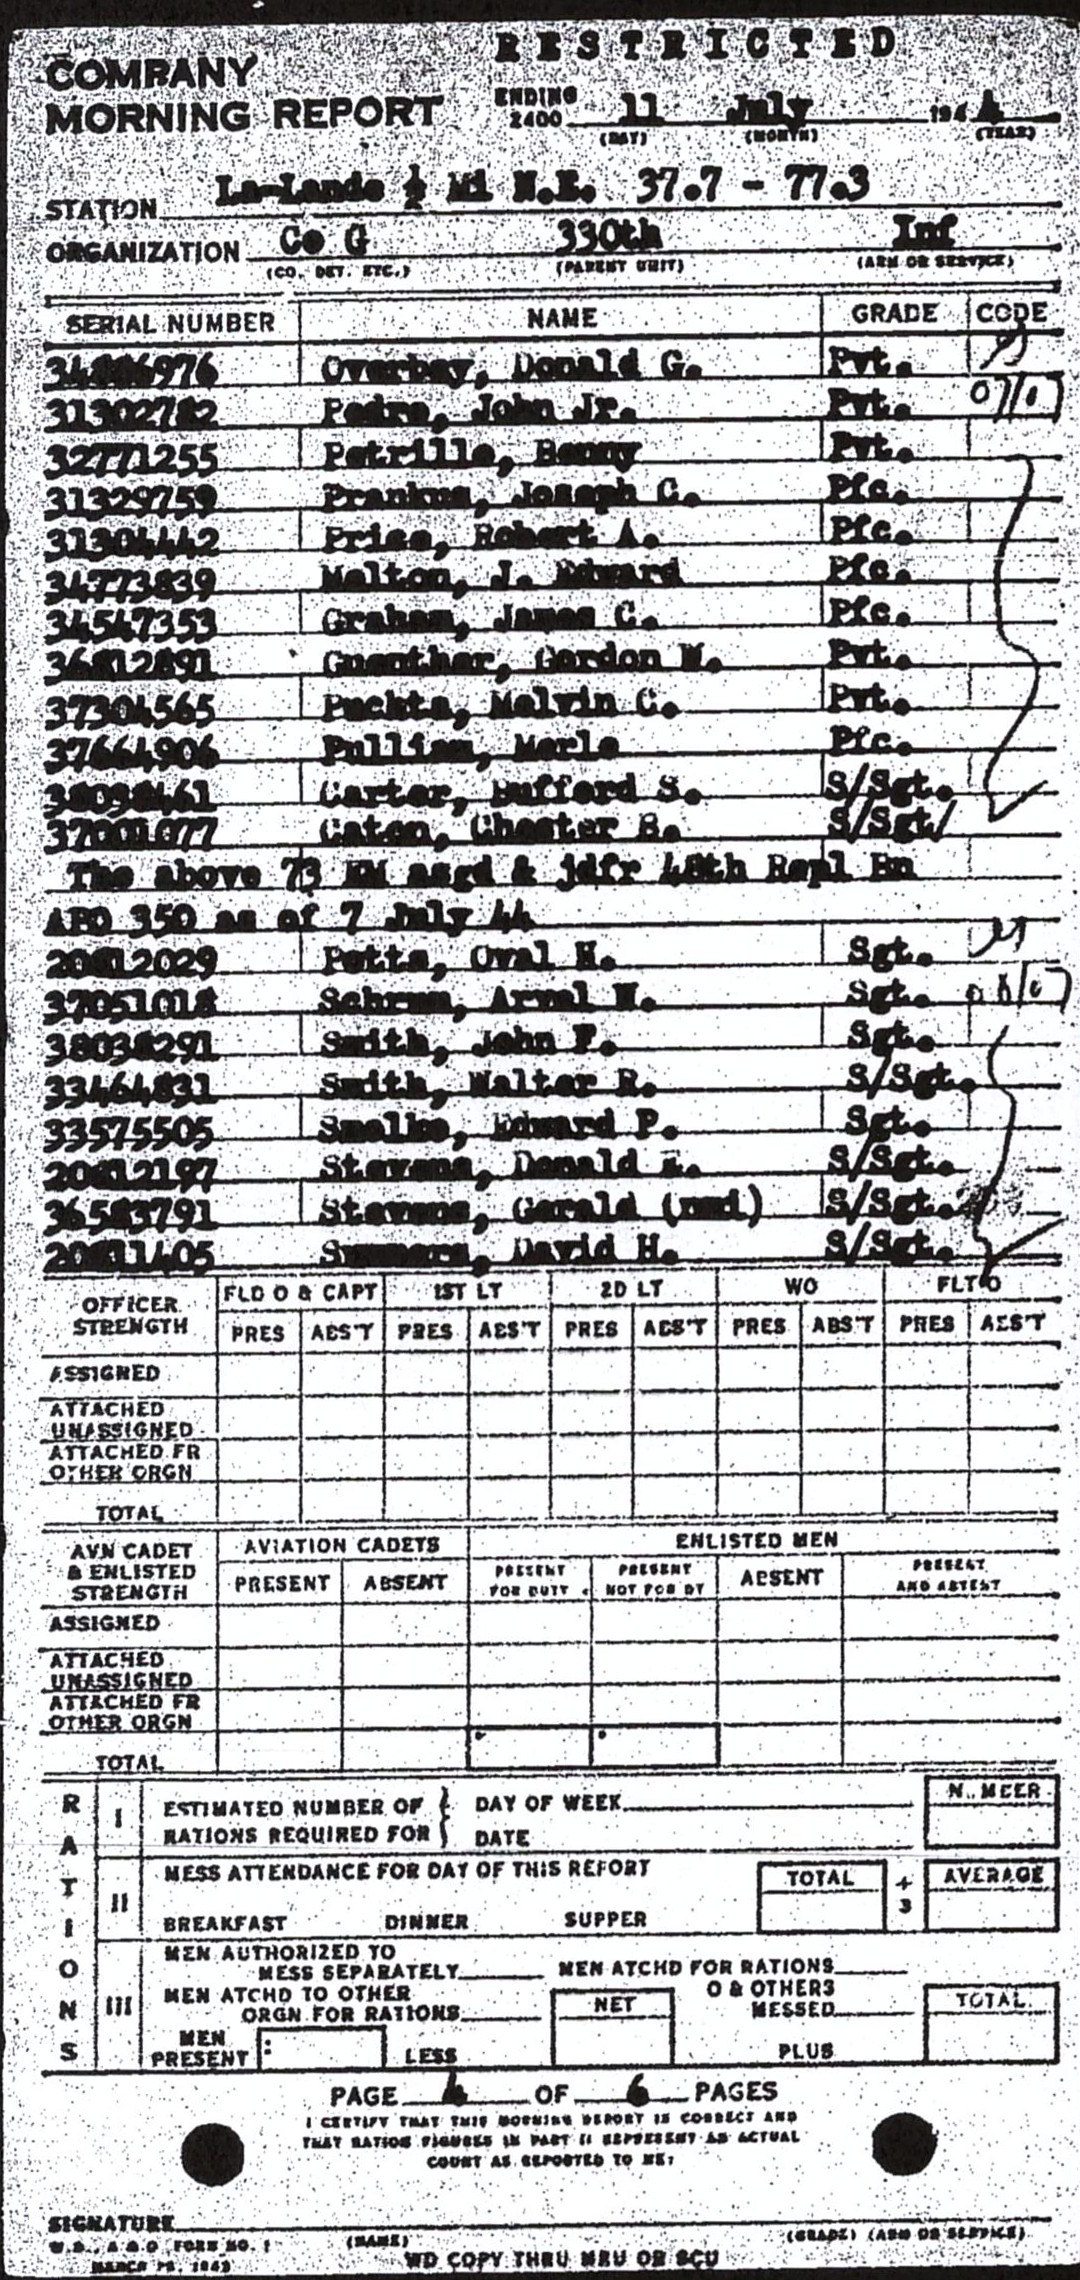 RESTRICTED
COMPANY
MORNING REPORT
ENDING
2400 11 July 1944
(DAY) (MONTH) (YEAR)
STATION La-Lande ½ Mi N.E. 37.7 - 77.3
ORGANIZATION Co G 330th Inf
(CO. DET. ETC.) (PARENT UNIT) (ARM OR SERVICE)
SERIAL NUMBER NAME GRADE CODE
Overbey, Donald G. Pvt.
31302782 Pedro, John Jr. Pvt.
32771255 Petrillo, Benny Pvt.
31329759 Prankus, Joseph C. Pfc.
31304442 Price, Robert A. Pfc.
34773839 Melton, J. Edward Pfc.
34547353 Graham, James C. Pfc.
36812891 Guenther, Gordon W. Pvt.
37304565 Puckta, Melvin C. Pvt.
37664906 Pulliam, Merle Pfc.
38038461 Carter, Bufford S. S/Sgt.
37001077 Caton, Chester B. S/Sgt/
The above 73 EM asgd & jdfr 48th Repl Bn
APO 350 as of 7 July 44
Potts, Oval H. Sgt.
37051018 Arvel W. Sgt.
38038291 Smith, John F. Sgt.
33464831 Smith, Walter R. S/Sgt.
33575505 Smelko, Edward P. Sgt.
Stevens, Donald S/Sgt.
36583791 Stevens, Gerald (nmi) S/Sgt.
Summers, David H. S/Sgt.
OFFICER STRENGTH FLD O & CAPT 1ST LT 2D LT WO FLT O
PRES ABS'T PRES ABS'T PRES ABS'T PRES ABS'T PRES ABS'T
ASSIGNED
ATTACHED
UNASSIGNED
ATTACHED FR
OTHER ORGN
TOTAL
AVN CADET & ENLISTED STRENGTH AVIATION CADETS ENLISTED MEN
PRESENT ABSENT PRESENT FOR DUTY PRESENT NOT FOR DY ABSENT PRESENT AND ABSENT
ASSIGNED
ATTACHED
UNASSIGNED
ATTACHED FR
OTHER ORGN
TOTAL
RATIONS
I ESTIMATED NUMBER OF DAY OF WEEK NUMBER
RATIONS REQUIRED FOR DATE
II MESS ATTENDANCE FOR DAY OF THIS REPORT TOTAL ÷ 3 AVERAGE
BREAKFAST DINNER SUPPER
III MEN AUTHORIZED TO
MESS SEPARATELY MEN ATCHD FOR RATIONS
MEN ATCHD TO OTHER O & OTHERS
ORGN FOR RATIONS NET MESSED TOTAL
MEN
PRESENT LESS PLUS
PAGE 4 OF 6 PAGES
I CERTIFY THAT THIS MORNING REPORT IS CORRECT AND
THAT RATION FIGURES IN PART II REPRESENT AN ACTUAL
COUNT AS REPORTED TO ME:
SIGNATURE
(NAME) (GRADE) (ARM OR SERVICE)
W.D., A G O FORM NO. 1
MARCH 1943
WD COPY THRU MRU OR SCU